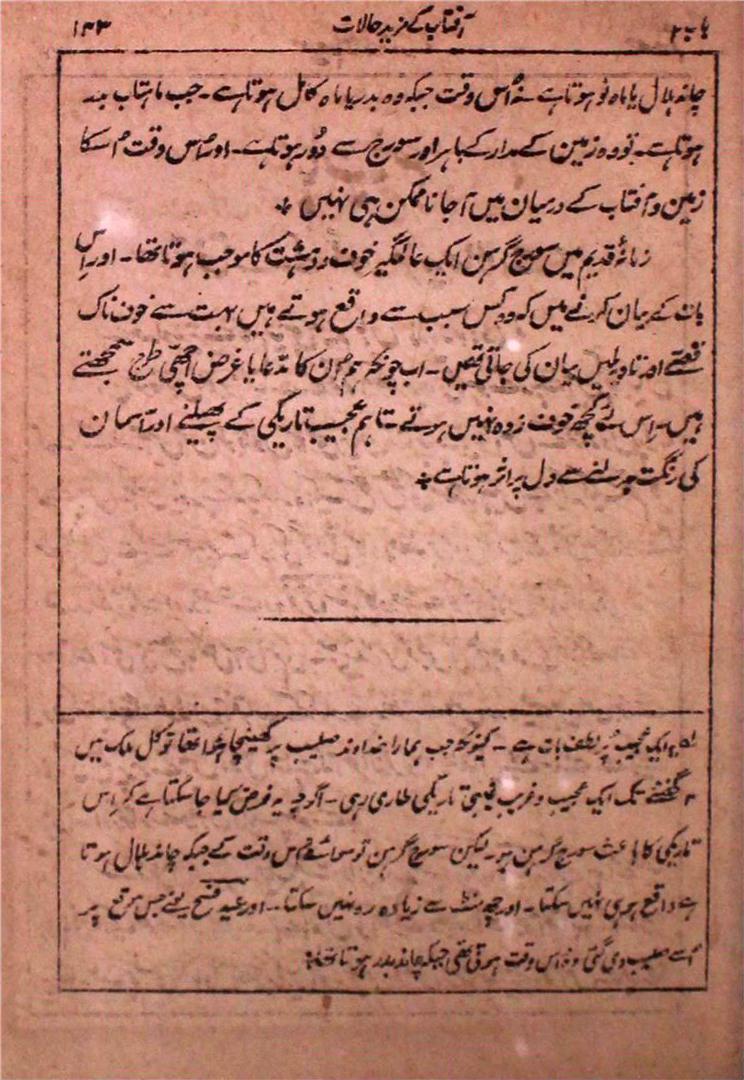 باب ۲ آفتاب کے مزید حالات ۱۳۳
چاند ہلال یا ماہ نو ہوتا ہے نہ اُس وقت جبکہ وہ بدر یا ماہ کامل ہوتا ہے۔ جب ماہتاب بدر
ہوتا ہے۔ تو وہ زمین کے مدار کے باہر اور سورج سے دُور ہوتا ہے۔ اور اُس وقت اُسکا
زمین و آفتاب کے درمیان میں آجانا ممکن ہی نہیں ۔
زمانۂ قدیم میں سورج گرہن ایک عالمگیر خوف و دہشت کا موجب ہوتا تھا۔ اور اِس
بات کے بیان کرنے میں کہ وہ کس سبب سے واقع ہوتے ہیں بہت سے خوفناک
قصّے اور تاویلیں بیان کی جاتی تھیں۔ اب چونکہ ہم اُن کا مدّعا یا غرض اچھّی طرح سمجھتے
ہیں۔ اِس لئے کچھ خوف زدہ نہیں ہوتے۔ تاہم عجیب تاریکی کے پھیلنے اور آسمان
کی رنگت بدلنے سے دل پر اثر ہوتا ہے ۔
ایک عجیب پُر لطف بات ہے۔ کیونکہ جب ہمارا خداوند صلیب پر کھینچا ہوا تھا تو کل ملک میں
گھنٹے تک ایک عجیب و غریب تاریکی طاری رہی۔ اگرچہ یہ فرض کیا جا سکتا ہے کہ اِس
تاریکی کا باعث سورج گرہن ہو۔ لیکن سورج گرہن تو سوائے اُس وقت کے جبکہ چاند ہلال ہوتا
ہے واقع ہو ہی نہیں سکتا۔ اور چھ منٹ سے زیادہ رہ نہیں سکتا۔ اور عید فسح یعنے جس موقع پر
اُسے صلیب دی گئی وہ اُس وقت ہوتی تھی جبکہ چاند بدر ہوتا تھا۔